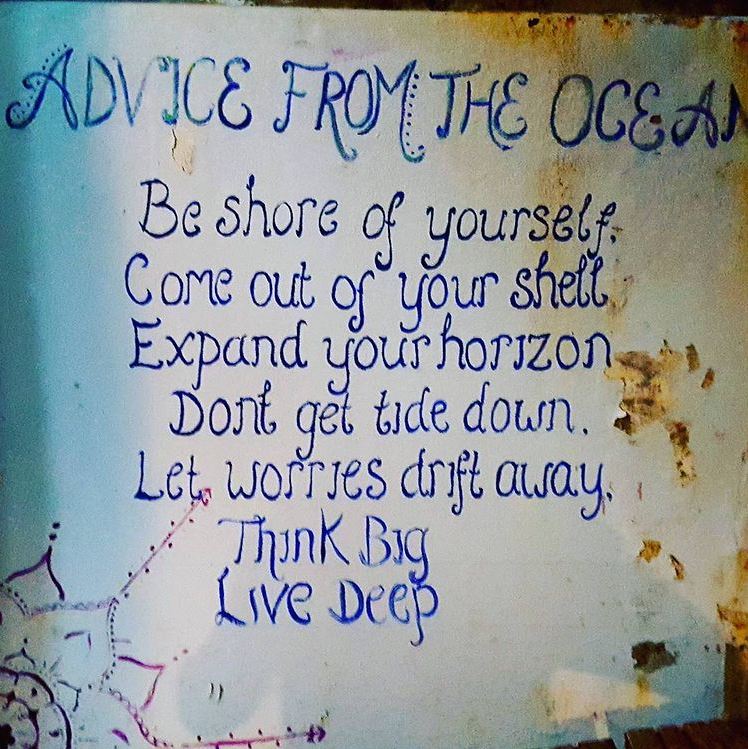 ADVICE FROM THE OCEAN
Be shore of yourself.
Come out of your shell
Expand your horizon
Dont get tide down.
Let worries drift away.
Think Big
Live Deep